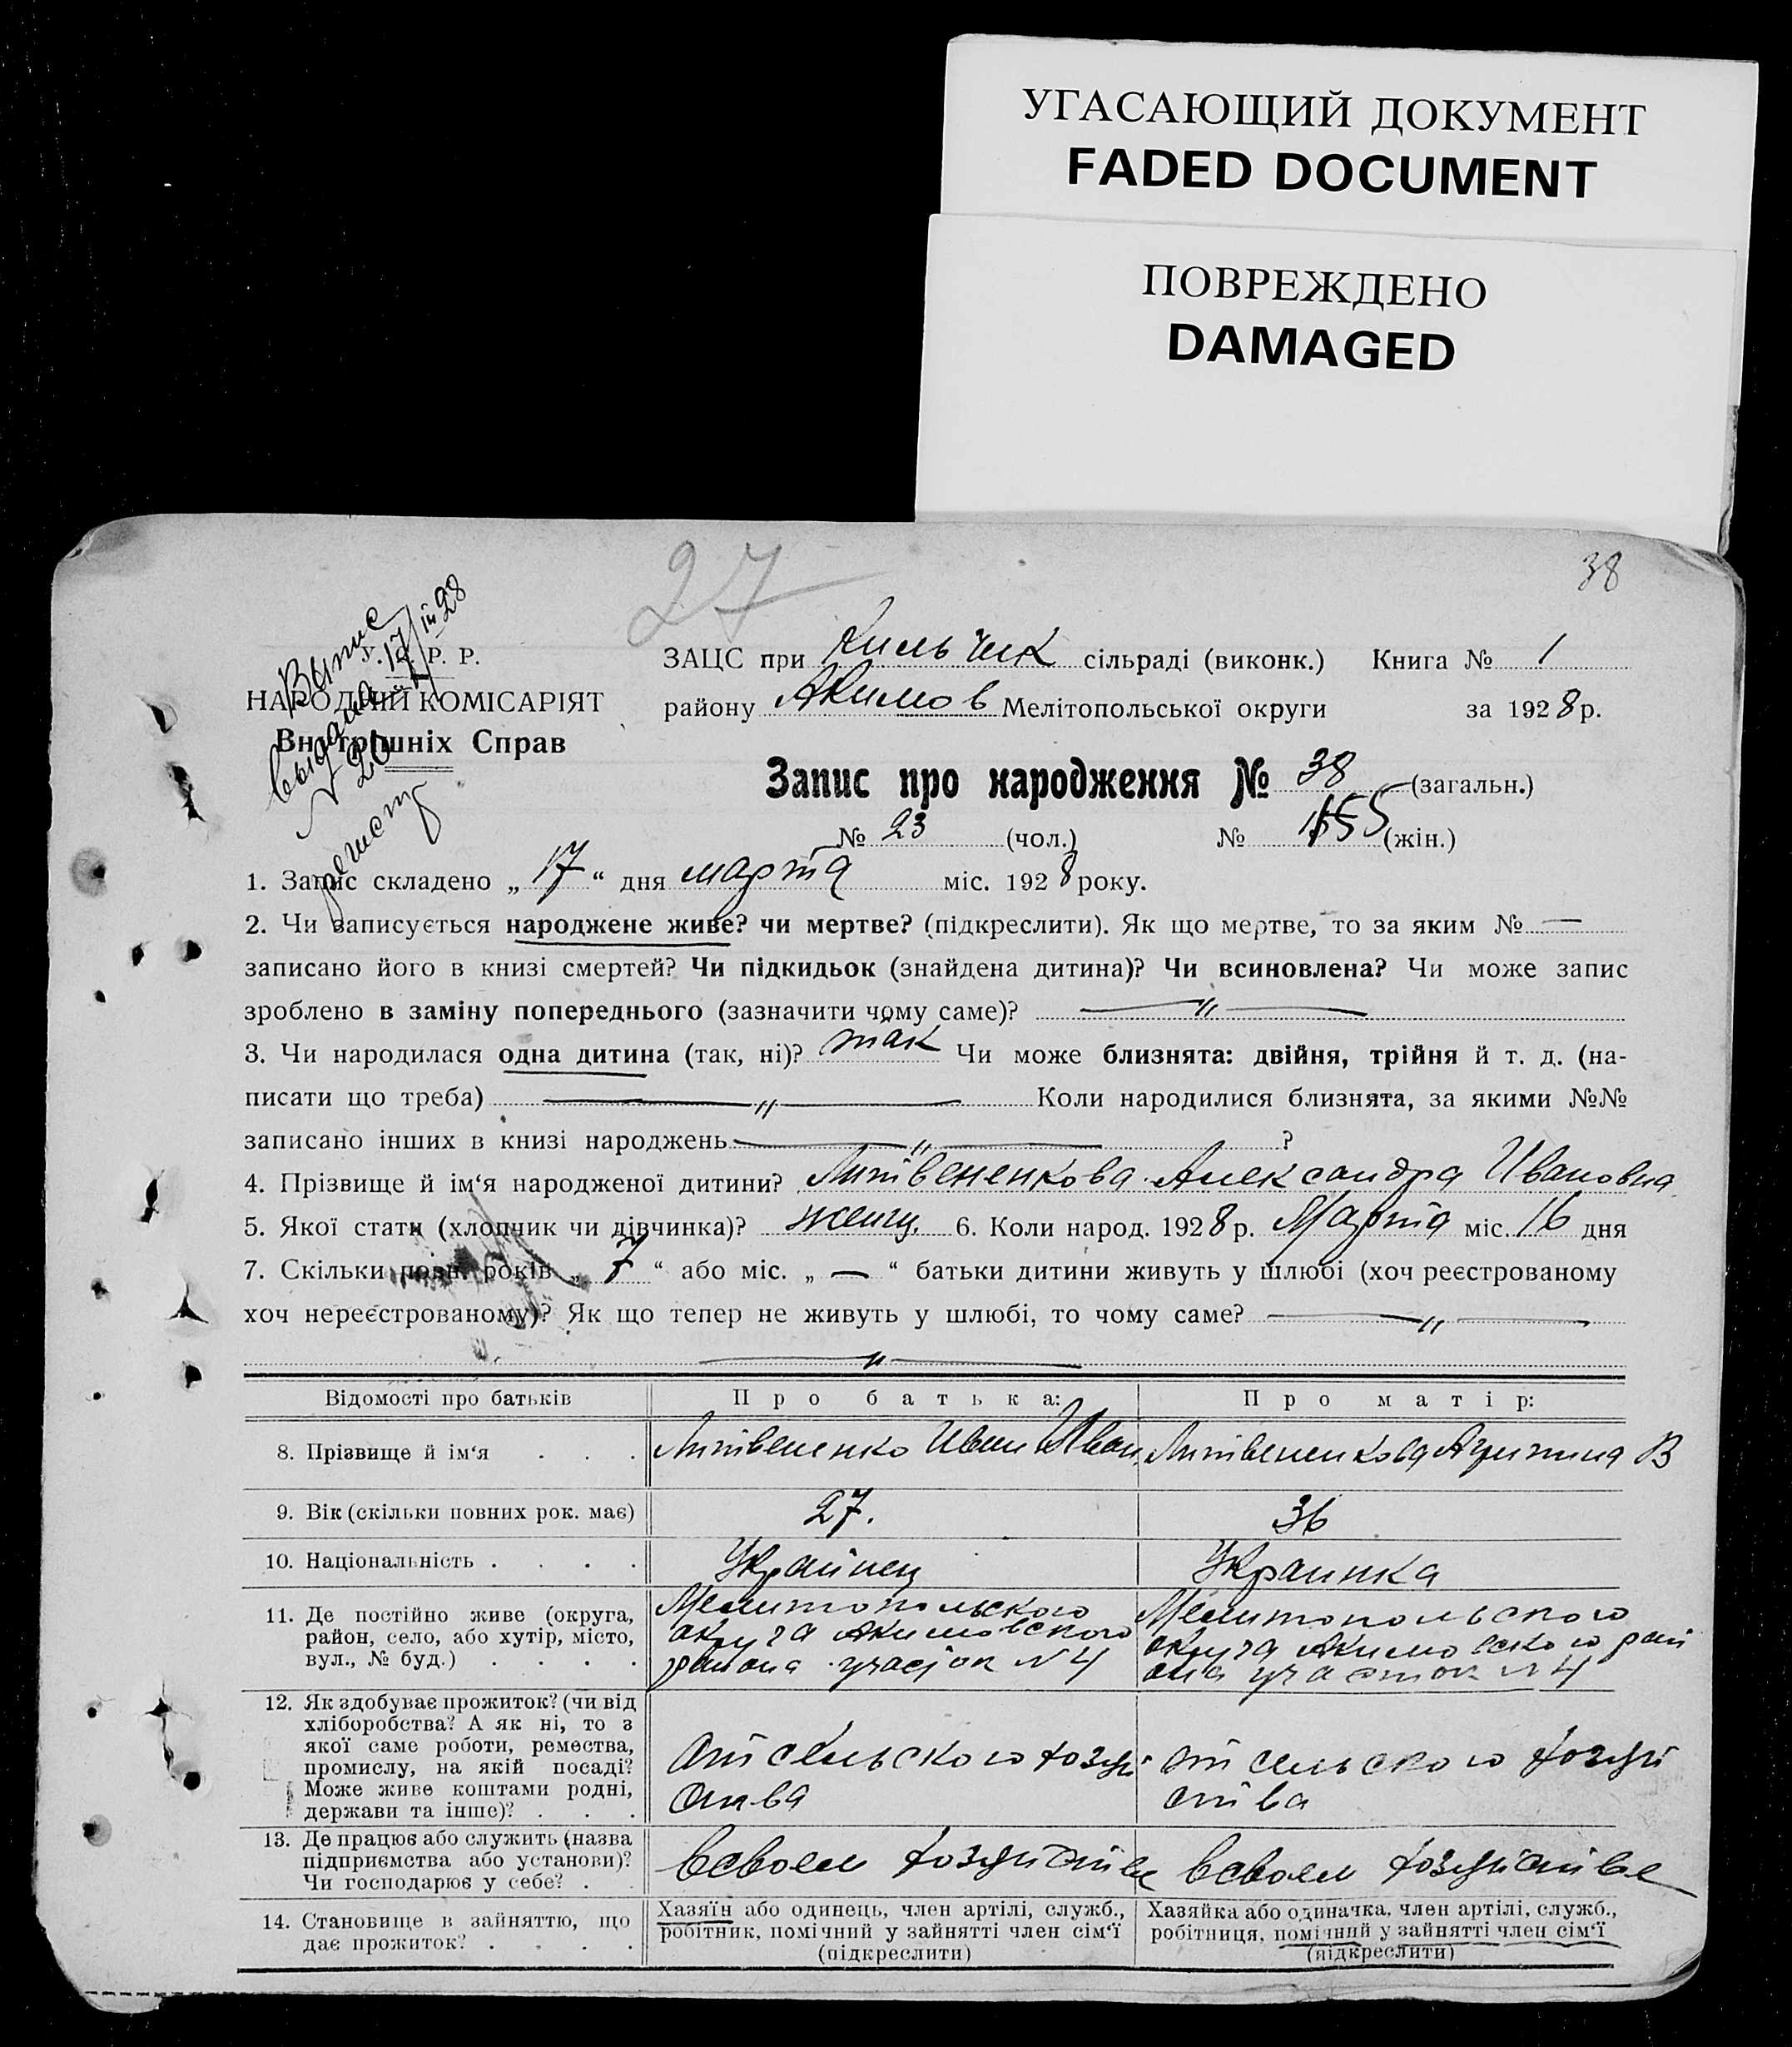 УГАСАЮЩИЙ ДОКУМЕНТ
FADED DOCUMENT
ПОВРЕЖДЕНО
DAMAGED
27
38
Выпис
выдана 17/III 28
№ 20
У. С. Р. Р.
НАРОДНІЙ КОМІСАРІЯТ
Внутрішніх Справ
ЗАЦС при Кильчик сільраді (виконк.) Книга № 1
району Акимов Мелітопольської округи за 1928 р.
Запис про народження № 38 (загальн.)
№ 23 (чол.) № 15 (жін.)
1. Запис складено „ 17 “ дня марта міс. 1928 року.
2. Чи записується народжене живе? чи мертве? (підкреслити). Як що мертве, то за яким № —
записано його в книзі смертей? Чи підкидьок (знайдена дитина)? Чи всиновлена? Чи може запис
зроблено в заміну попереднього (зазначити чому саме)? — „ —
3. Чи народилася одна дитина (так, ні)? так Чи може близнята: двійня, трійня й т. д. (на-
писати що треба) — „ — Коли народилися близнята, за якими №№
записано інших в книзі народжень — „ — ?
4. Прізвище й ім‘я народженої дитини? Литвененкова Александра Ивановна
5. Якої стати (хлопчик чи дівчинка)? женщ. 6. Коли народ. 1928 р. Марта міс. 16 дня
7. Скільки повн. років „ 7 “ або міс. „ — “ батьки дитини живуть у шлюбі (хоч реєстрованому
хоч нереєстрованому)? Як що тепер не живуть у шлюбі, то чому саме? — „ —
— „ —
Відомості про батьків Про батька: Про матір:
8. Прізвище й ім‘я . . . Литвененко Иван Иван. Литвененкова В
9. Вік (скільки повних рок. має) 27. 36
10. Національність . . . . Украйнец Украинка
11. Де постійно живе (округа,
район, село, або хутір, місто,
вул., № буд.) . . . .
Мелитопольского
округа Акимовского
района участок N 4
Мелитопольского
округа Акимовского рай
она участок N 4
12. Як здобуває прожиток? (чи від
хліборобства? А як ні, то з
якої саме роботи, ремества,
промислу, на якій посаді?
Може живе коштами родні,
держави та інше)? . . .
От сельского хозяй
ства
от сельского хозяй
ства
13. Де працює або служить (назва
підприємства або установи)?
Чи господарює у себе? . .
всвоем хозяйстве
всвоем хозяйстве
14. Становище в зайняттю, що
дає прожиток? . . . .
Хазяїн або одинець, член артілі, служб.,
робітник, помічний у зайнятті член сім‘ї
(підкреслити)
Хазяйка або одиначка, член артілі, служб.,
робітниця, помічний у зайнятті член сім‘ї
(підкреслити)